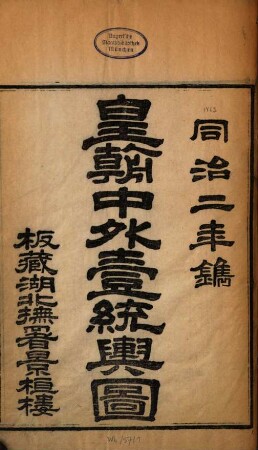 Bayerische
Staatsbibliothek
München
同治二年鐫
皇朝中外壹統輿圖
板藏湖北撫署景桓樓